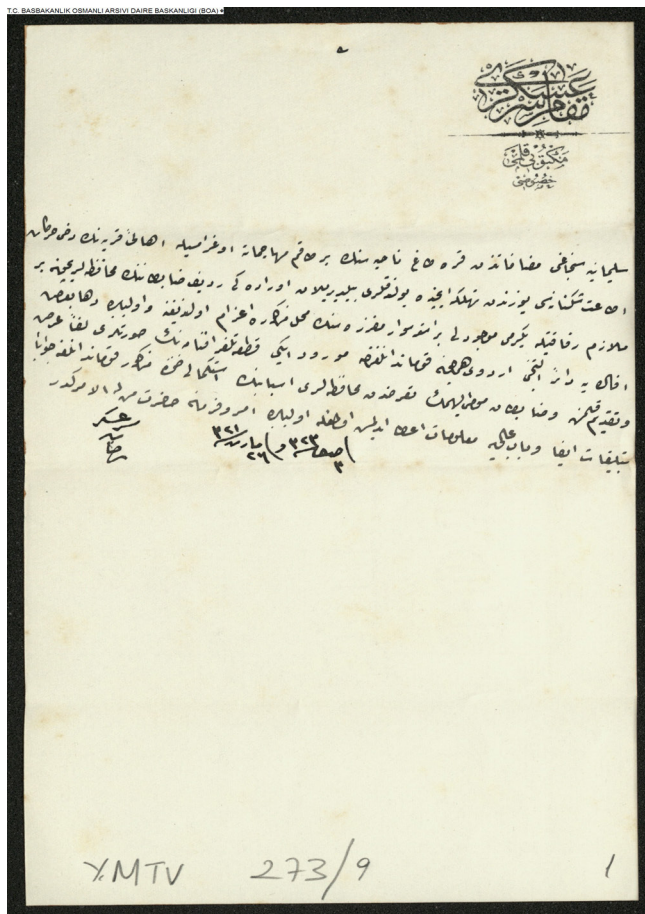 T.C. BASBAKANLIK OSMANLI ARSIVI DAIRE BASKANLIGI (BOA)
مقام سرعسكرى
مكتوبى قلمى
سليمانيه سنجاغى مضافاتندن قره طاغ ناحيه سنك بر طاقم مهاجماته اوغراميله اهالئ قريه نك
اطاعت يوزندن تهلكه ايچنده بولندقلرى بيلديريلان اوراده كى رديف ضابطاننك محافظه لريچون بر
ملازم رفاقتيله يكرمى موجودلى بر استر سوار مفرزه سنك محل مذكوره اعزام اولنديغنه و اولبابده دها بعض
افاده يه دائر التنجى اردوى همايون قوماندانلغندن مورود ايكى قطعه تلغرافنامه نك صورتلرى لفاً عرض
و تقديم قلنمش و ضابطان تعرضدن محافظه لرى اسبابنك استكمالى ضمننده مذكور قوماندانلغه جواباً
تبليغات ايفا و باب عالى يه معلومات اعطا ايدلمش اولمغله اولبابده امر و فرمان حضرت من له الامركدر
٣ صفر ٣٢٣ و ٢٦ مارت ٣٢١
سرعسكر
رضا
Y.MTV 273/9 1